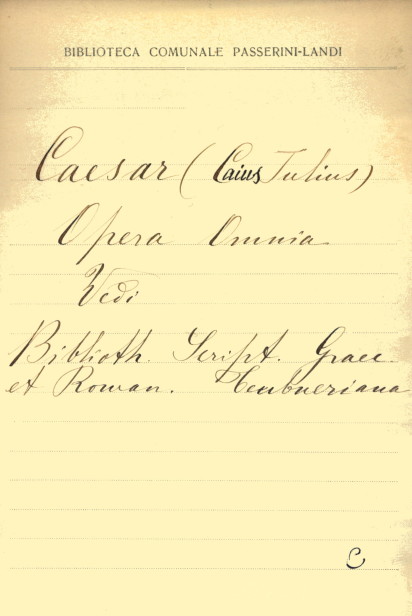 BIBLIOTECA COMUNALE PASSERINI-LANDI
Caesar (Caius Julius)
Opera Omnia
Vedi
Biblioth. Script. Graec.
et Roman. Teubneriana
C